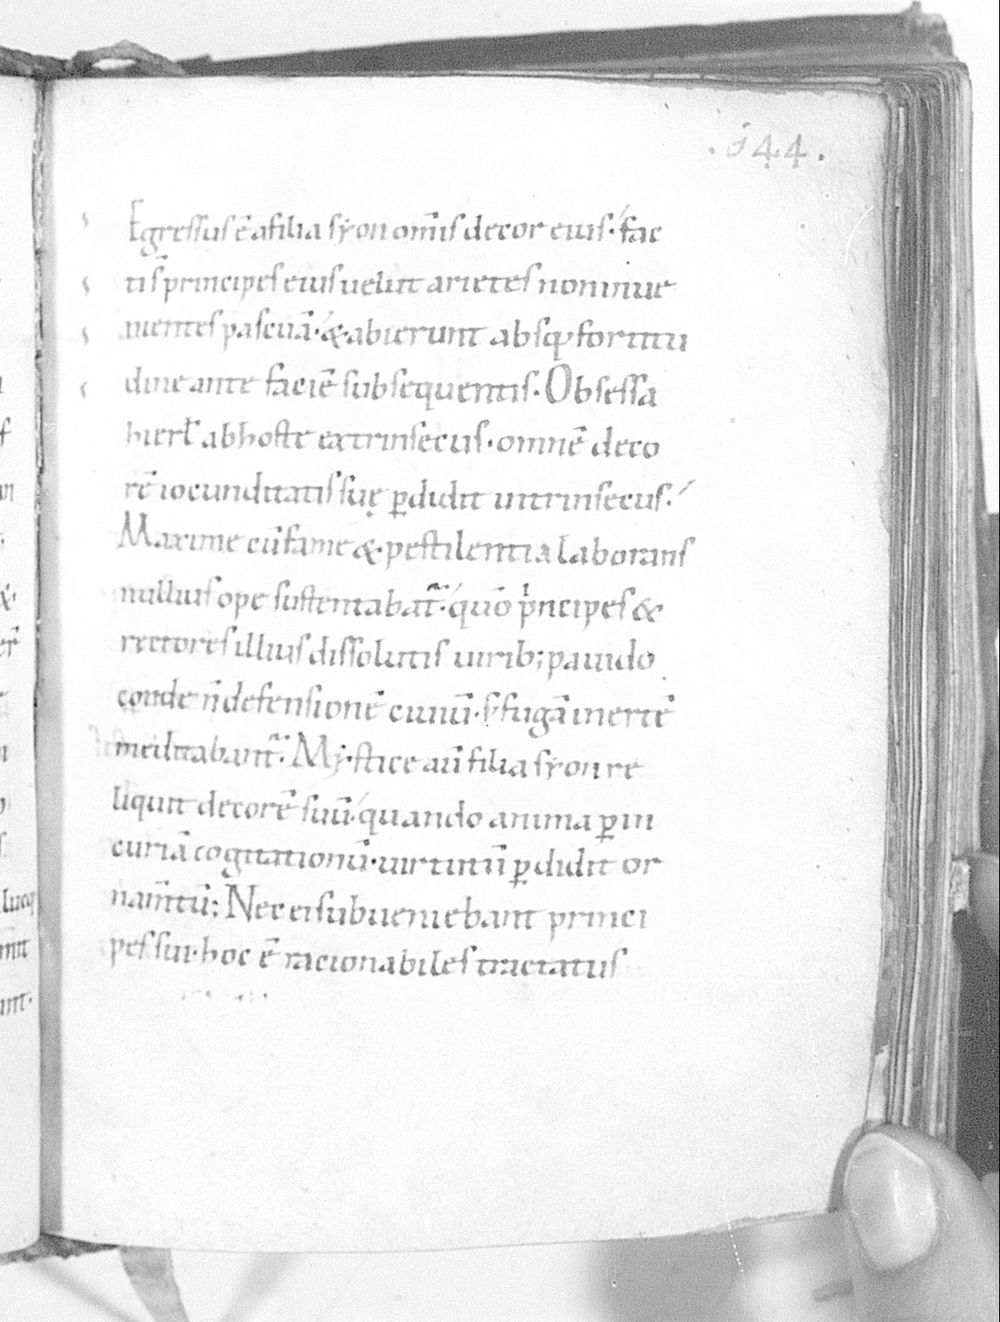 .344.
Egressus ē a filia syon om̄is decor eius· fac
ti s̄ principes eius uelut arietes non inue
nientes pascuā· & abierunt absq; fortitu
dine ante faciē subsequentis· Obsessa
hierl̄ ab hoste extrinsecus· omnē deco
rē iocunditatis suę ꝑdidit intrinsecus·
Maxime cū fame & pestilentia laborans
nullius ope sustentabat᷑· quō pͥncipes &
rectores illius dissolutis uirib; pauido
corde n̄ defensionē ciuiū· s; fugā inertē
meditabant᷑. Mystice aū filia syon re
liquit decorē suū· quando anima ꝑ in
curiā cogitationū· uirtutū ꝑdidit or
nam̄tū; Nec ei subueniebant princi
pes sui· hoc ē racionabiles tractatus